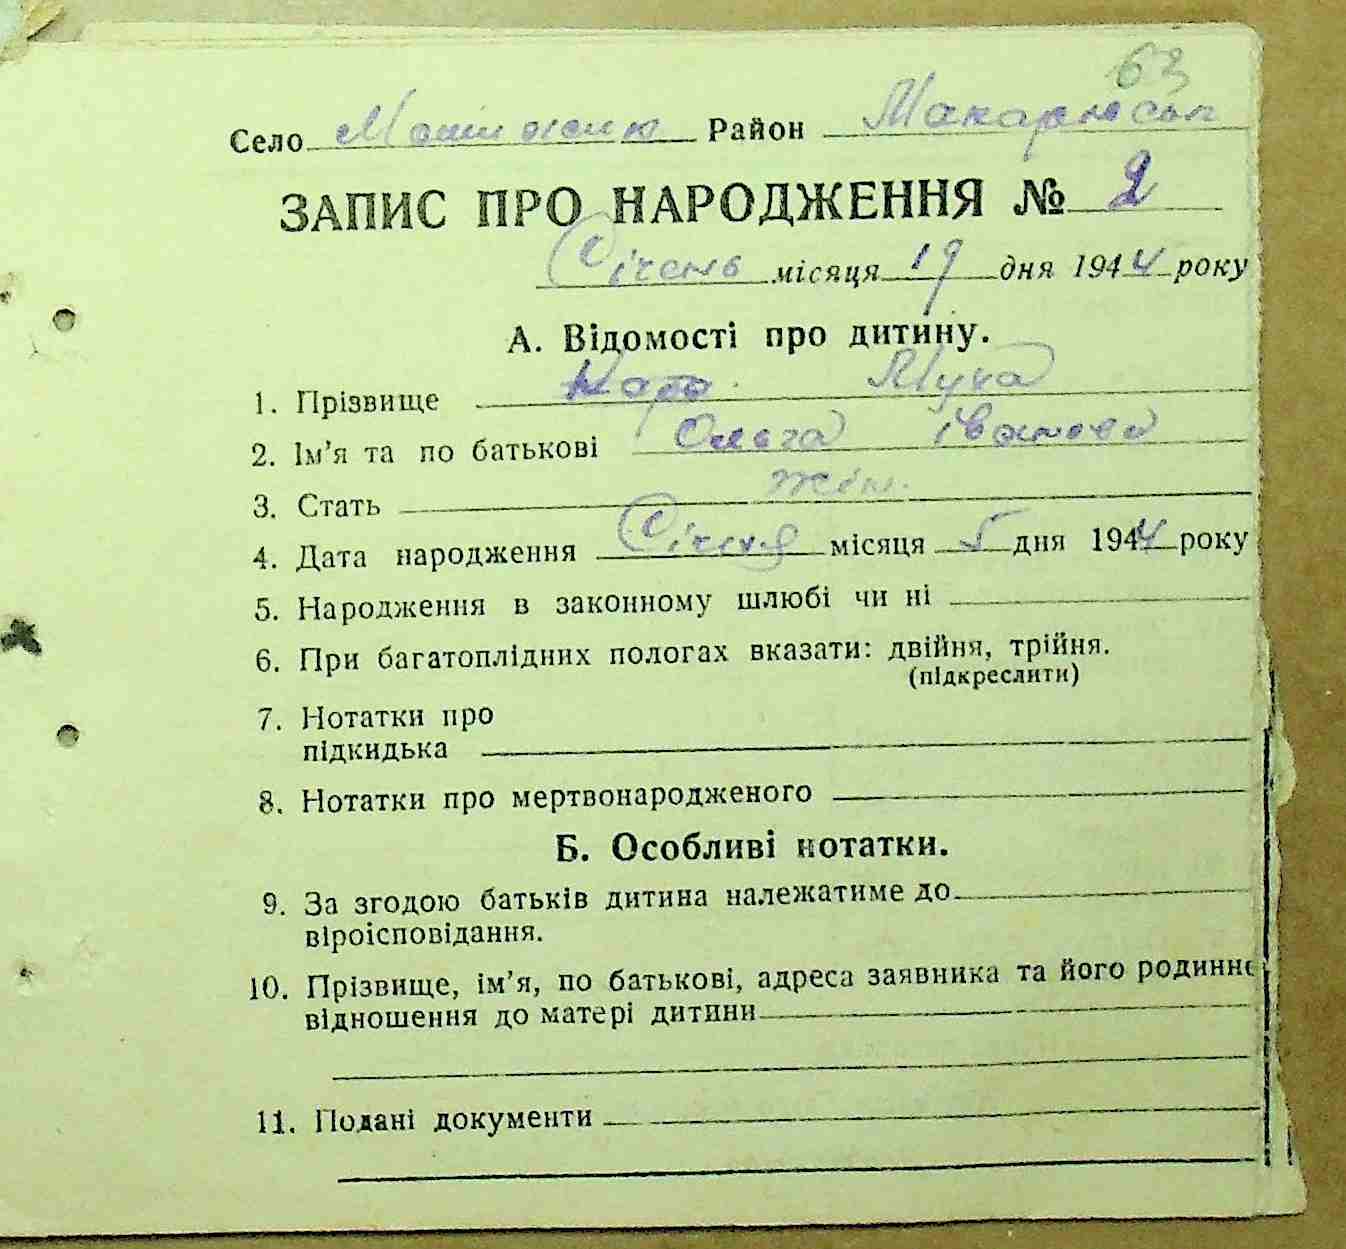 63
Село Мотижин Район Макарівськ
ЗАПИС ПРО НАРОДЖЕННЯ № 2
Січень місяця 19 дня 1944 року
А. Відомості про дитину.
1. Прізвище Муха
2. Ім'я та по батькові Ольга Іванови
3. Стать жін.
4. Дата народження Січня місяця 5 дня 1944 року
5. Народження в законному шлюбі чи ні
6. При багатоплідних пологах вказати: двійня, трійня.
(підкреслити)
7. Нотатки про
підкидька
8. Нотатки про мертвонародженого
Б. Особливі нотатки.
9. За згодою батьків дитина належатиме до
віроісповідання.
10. Прізвище, ім'я, по батькові, адреса заявника та його родинне
відношення до матері дитини
11. Подані документи